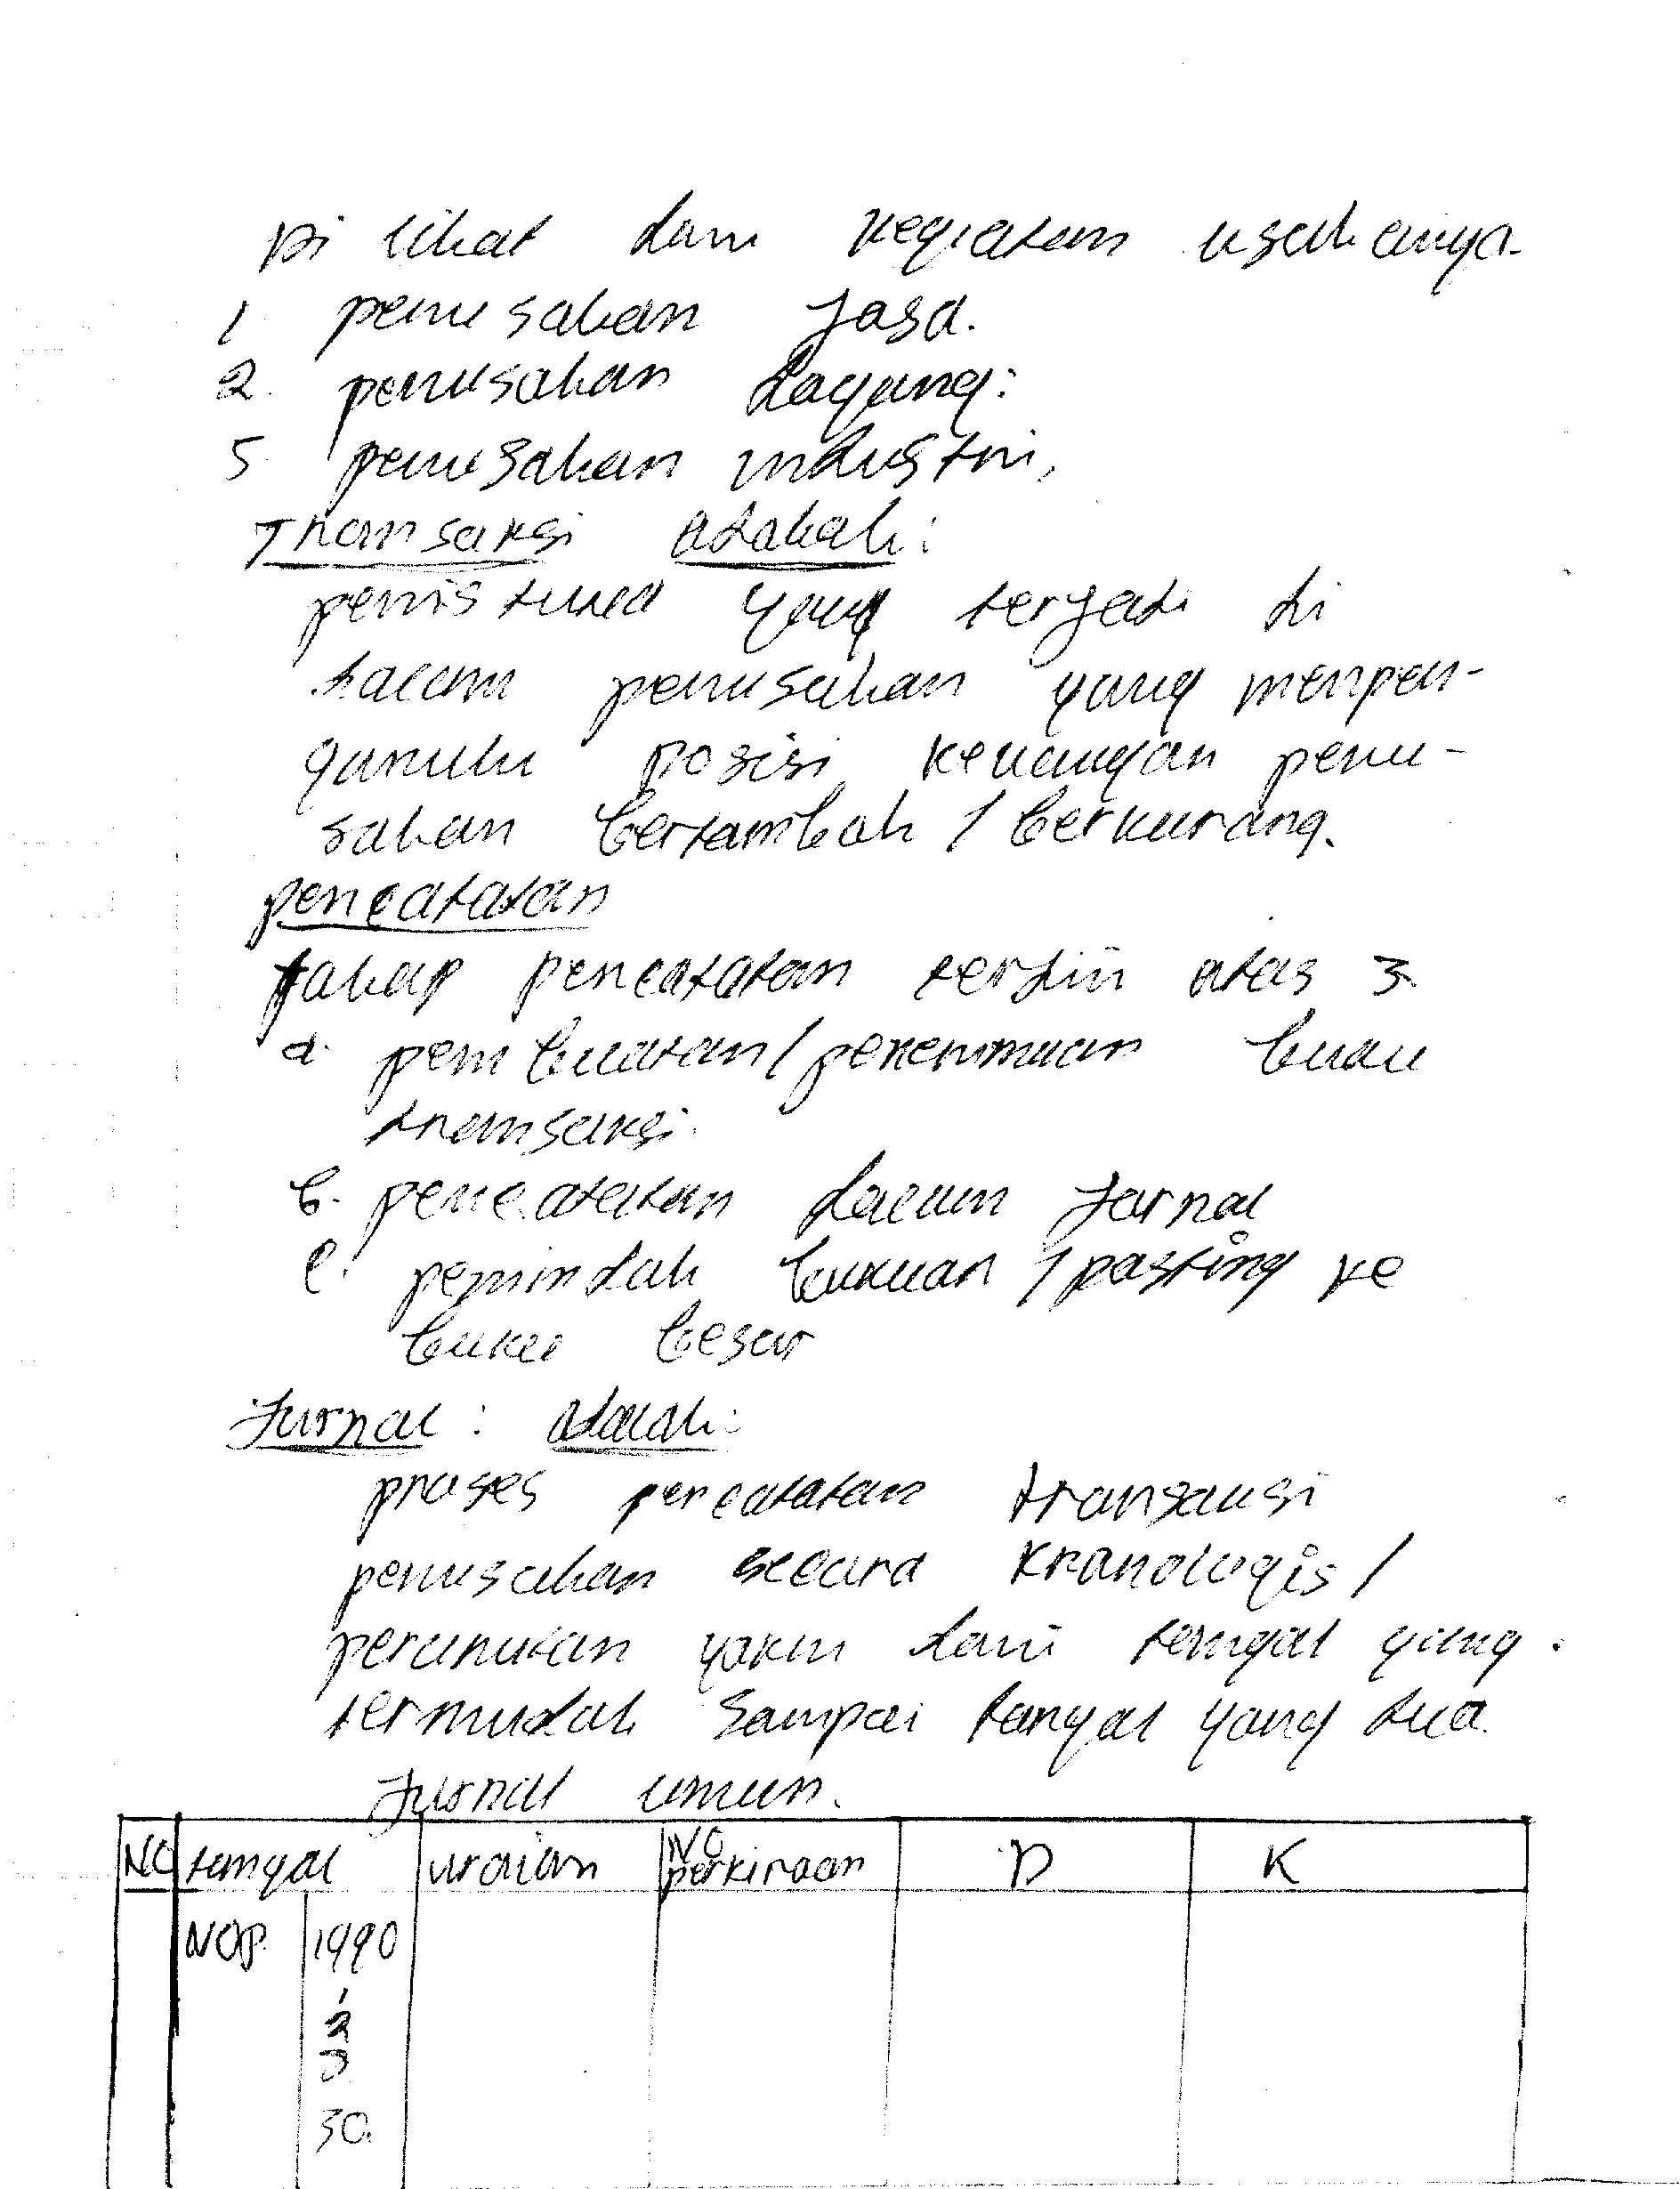 Di lihat dari kegiatan usahanya.
1 perusahan Jasa.
2. perusahan dagang.
3 perusahan industri,
Transaksi adalah:
peristiwa yang terjadi di
dalam perusahan yang mempen-
garuhi posisi keuangan peru-
sahan bertambah / berkurang.
pencatatan
tahap pencatatan terdiri atas 3
a. pembuatan/penerimaan bukti
transaksi.
b. pencatatan dalam Jurnal
c. pemindah bukuan / pasting ke
buku besar
Jurnal : adalah:
proses pencatatan transaksi
perusahan secara kranologis /
perurutan yakni dari tanggal yang
termudah sampai tanggal yang tua.
Jurnal umum.
NO tanggal uraian NO perkiraan D K
NOP. 1990
1
2
3
30.